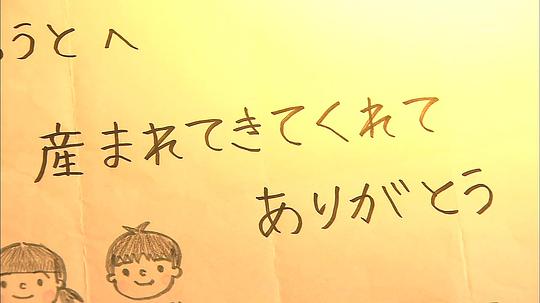 うとへ
産まれてきてくれて
ありがとう